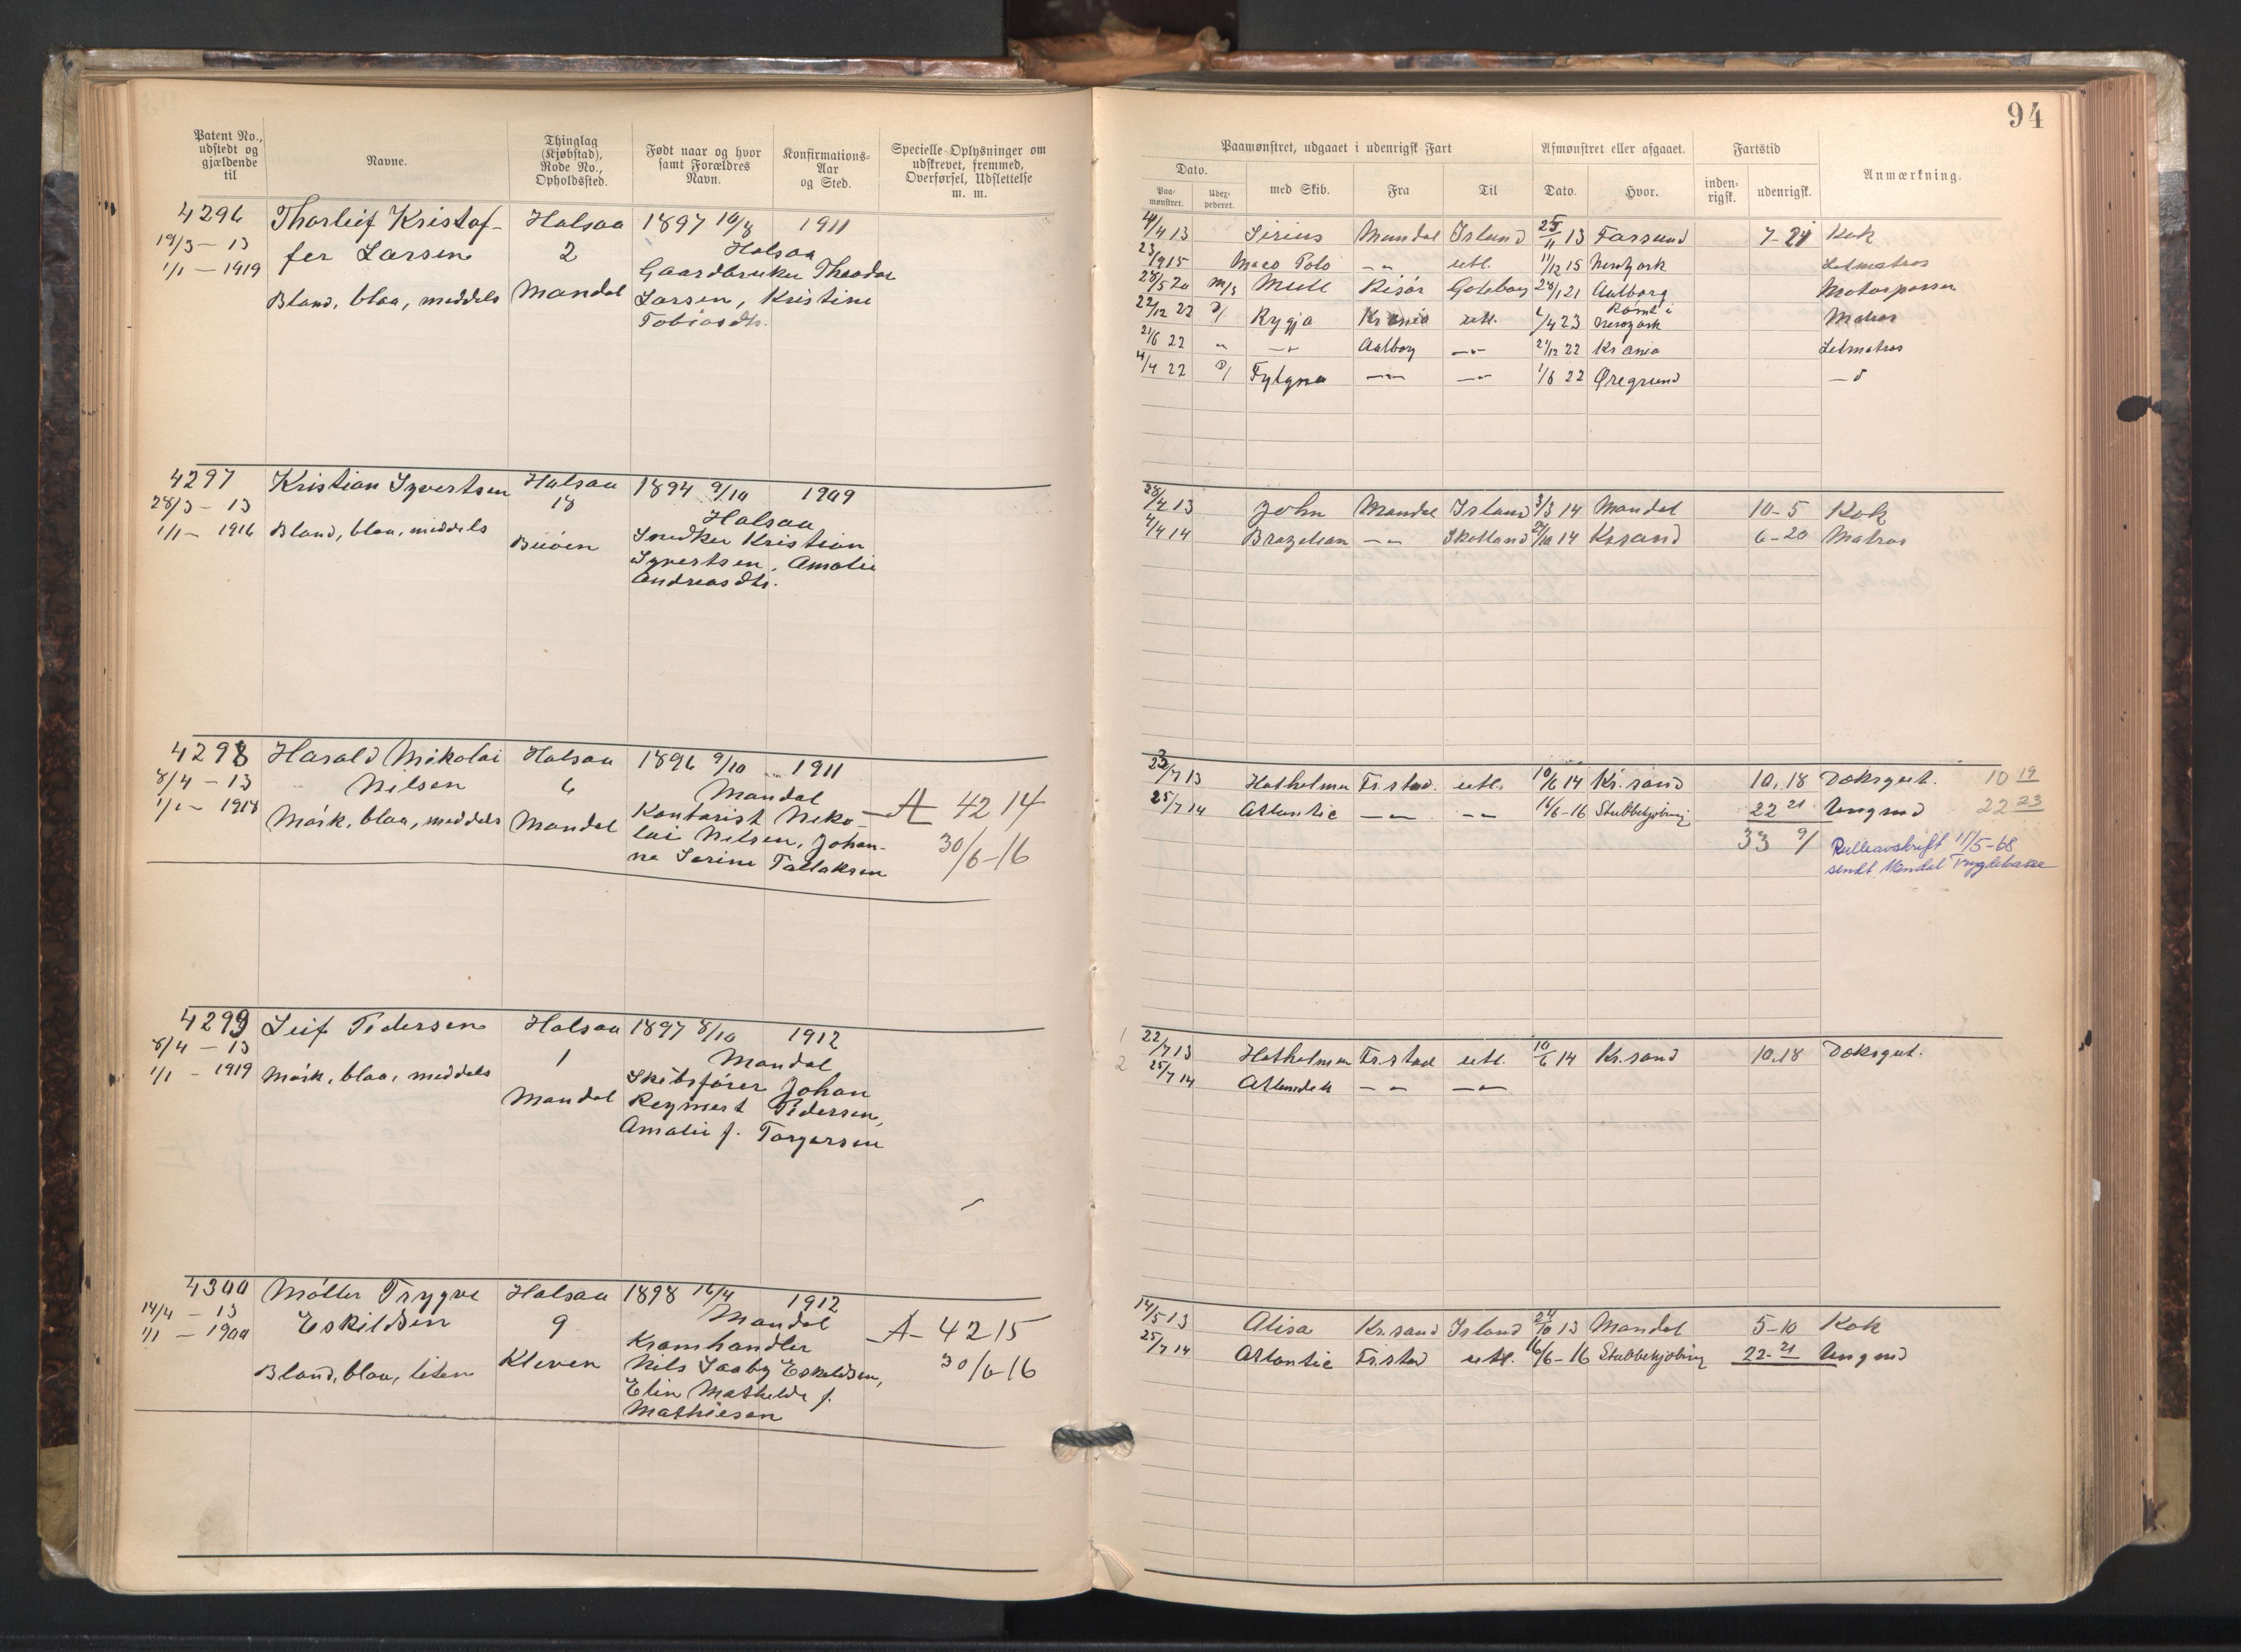 94
Patent No., udstedt og gjældende til
Navne.
Thinglag (Kjøbstad), Rode No., Opholdssted.
Født naar og hvor samt Forældres Navn.
Konfirmations-Aar og Sted.
Specielle Oplysninger om udskrevet, fremmed, Overførsel, Udslettelse m. m.
Paamønstret, udgaaet i udenrigsk Fart
Afmønstret eller afgaaet.
Fartstid
Anmærkning.
Dato.
Paa-mønstret.
Udex-pederet.
med Skib.
Fra
Til
Dato.
Hvor.
inden-rigsk.
udenrigsk.
4296 Thorleif Kristof- Halsaa 1897 10/8 1911
19/3 - 13 fer Larsen 2 Halsaa
1/1 - 1919 Gaardbruker Theodor
Bland, blaa, meddels Mandal Larsen, Kristine
Tobiasdtr.
4/4 13 Sirius Mandal Island 25/11 13 Farsund 7-21 Kok
23/9 15 Marco Polo -"- utl. 11/12 15 Newyork Letmatros
28/5 20 M/S Mull Risör Goteborg 28/1 21 Aalborg Motorpasser
22/12 22 D/ Rygja Kr.ania utl. /4 23 Rømt i Newyork Matros
21/6 22 " -"- Aalborg -"- 21/12 22 Kr.ania Letmatros
4/4 22 D/ Fylgia -"- -"- 1/6 22 Øregrund -"-
4297 Kristian Syvertsen Halsaa 1894 9/10 1909
28/3 - 13 18 Halsaa
1/1 - 1916 Bland, blaa, meddels Snedker Kristian
Buöen Syvertsen, Amalie
Andreasdtr.
28/4 13 John Mandal Island 3/3 14 Mandal 10-5 Kok
4/4 14 Brazilian -"- Skotland 24/10 14 Kr.sand 6-20 Matros
4298 Harald Nikolai Halsaa 1896 9/10 1911
8/4 - 13 Nilsen 6 Mandal
1/1 - 1918 Mörk, blaa, meddels Mandal Kontorist Niko- A 4214
lai Nilsen, Johan- 30/6-16
na Sorine Tallaksen
22/7 13 Hatholmen Fr.stad. utl. 10/6 14 Kr.sand 10.18 Doksgut. 10 19
25/7 14 Atlantic -"- -"- 16/6-16 Stubbekjöbing 22 21 Ungmd 22 23
33 9/ Rulleavskrift 11/5-68
sendt Mandal Trygdekasse
4299 Leif Pedersen Halsaa 1897 8/10 1912
8/4 - 13 1 Mandal
1/1 - 1919 Mörk, blaa, meddels Skibsförer Johan
Mandal Reymert Pedersen,
Amalie f. Torgersen
1 22/7 13 Hatholmen Fr.stad utl. 10/6 14 Kr.sand 10.18 Doksgut.
2 25/7 14 Atlantic -"- -"-
4300 Möller Trygve Halsaa 1898 16/4 1912
14/4 - 13 Eskildsen 9 Mandal
1/1 - 1900 Kramhandler A- 4215
Bland, blaa, liten Kleven Nils Saaby Eskildsen, 30/6-16
Elin Mathilde f.
Mathiesen
14/5 13 Alisa Kr.sand Island 24/10 13 Mandal 5-10 Kok
25/7 14 Atlantic Fr.stad utl. 16/6-16 Stubbekjöbing 22-21 Ungmd